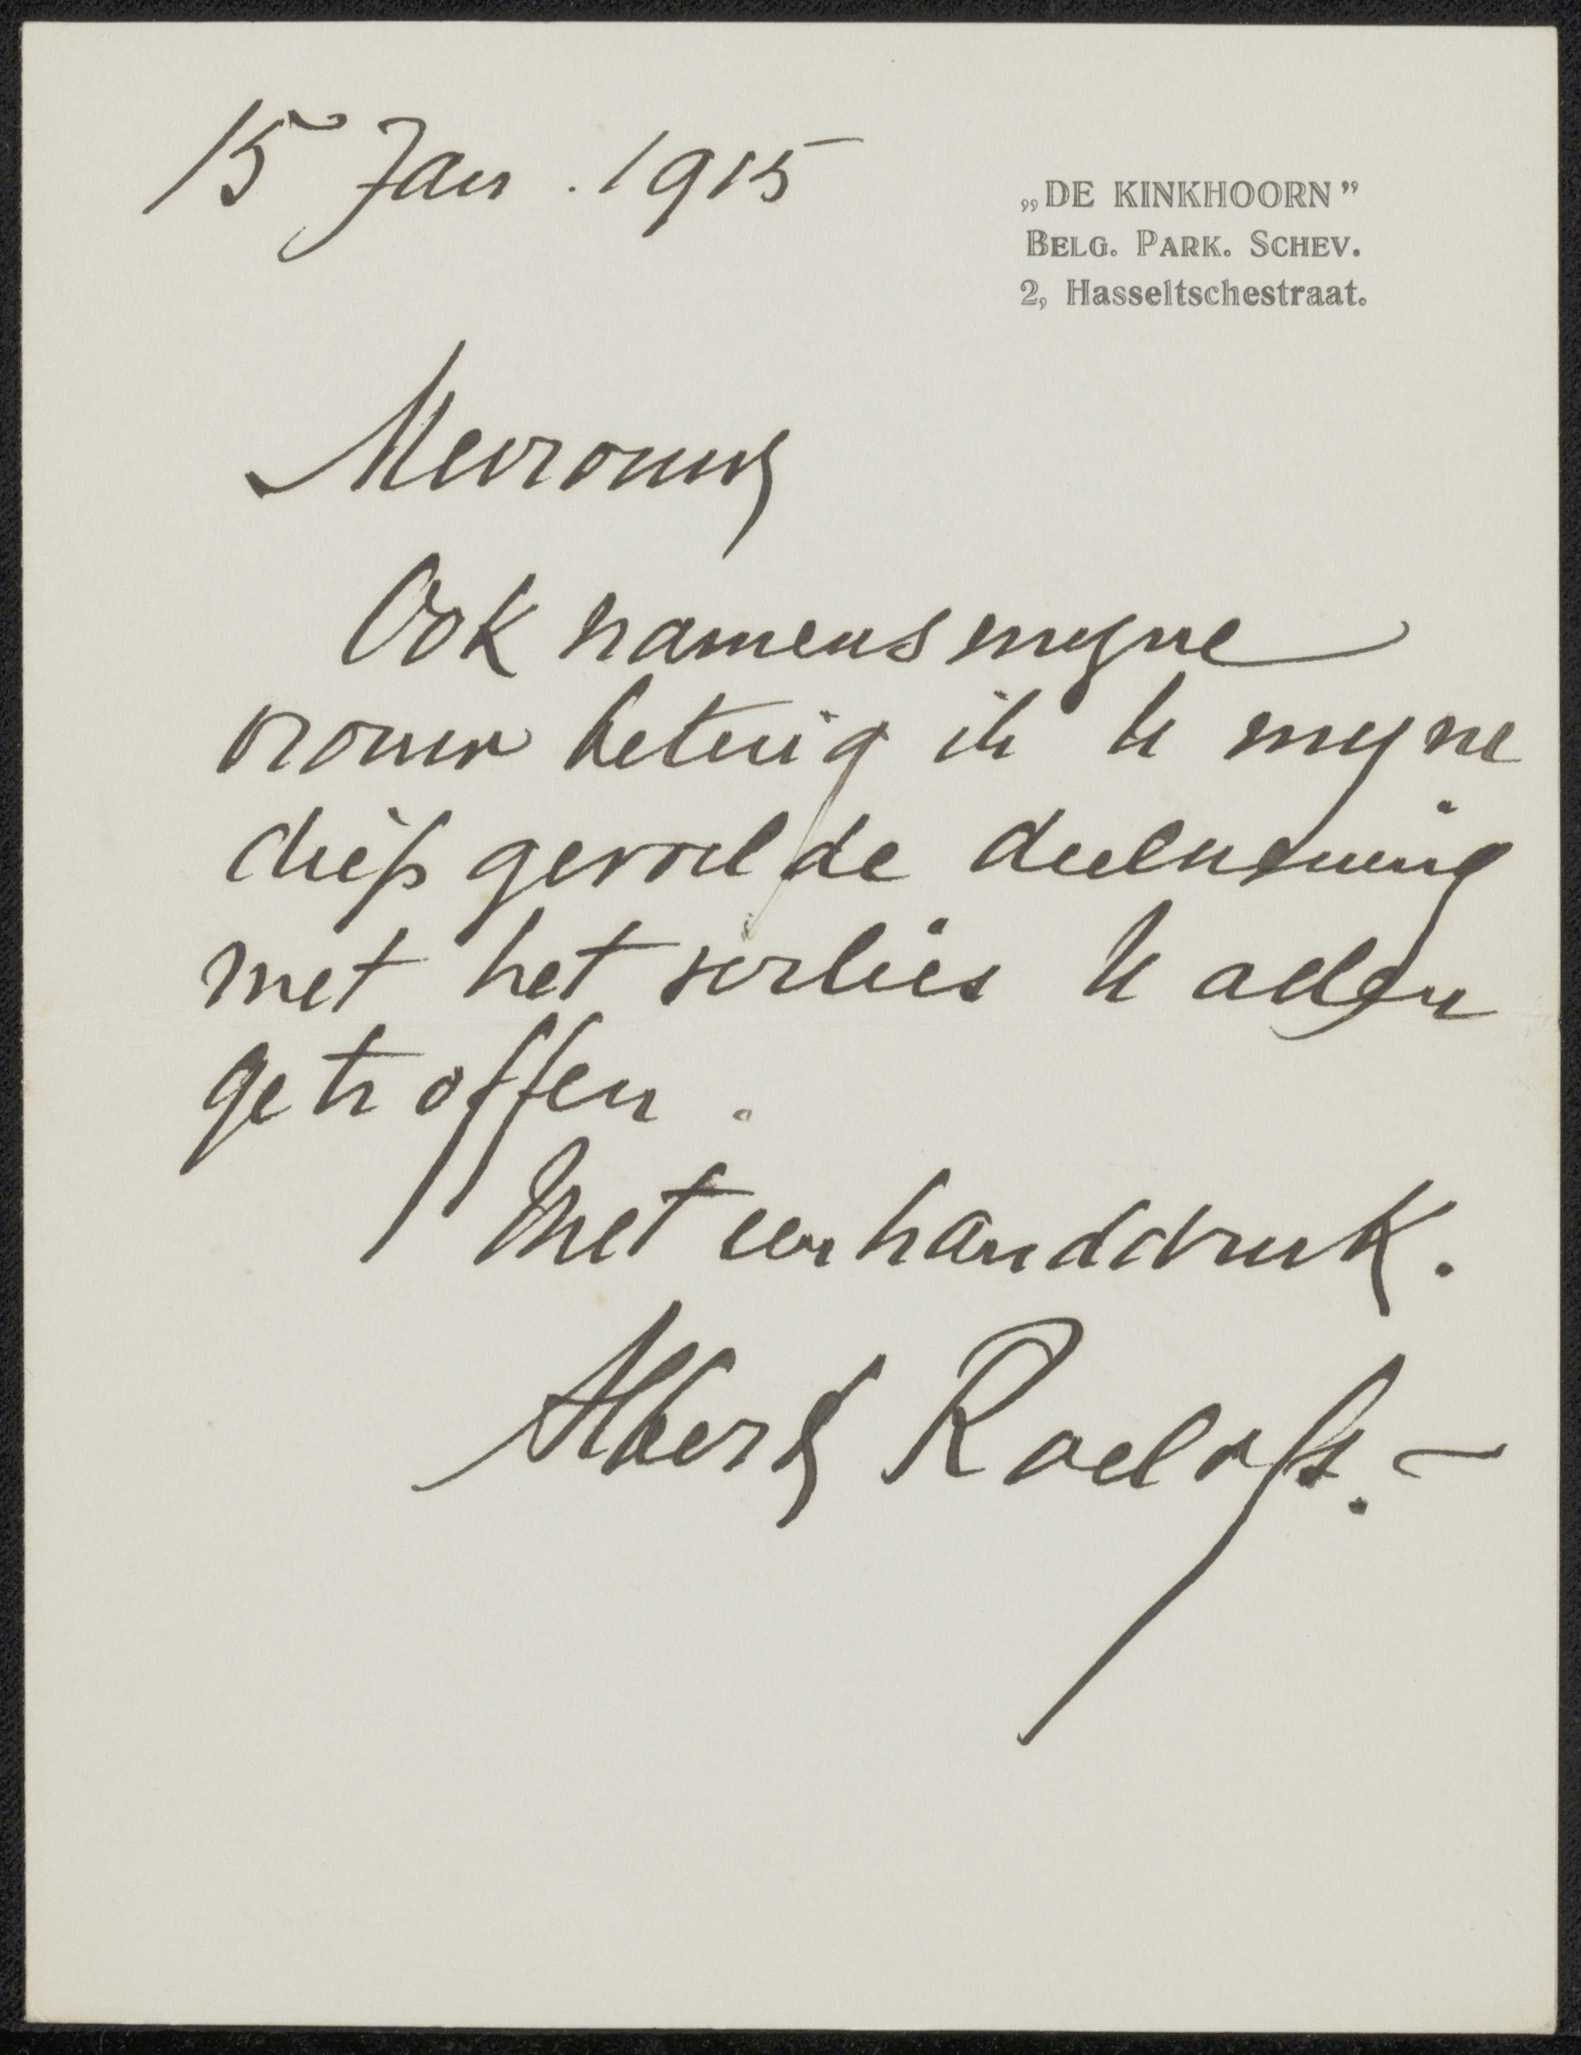 15 Jan. 1915
„DE KINKHOORN”
BELG. PARK. SCHEV.
2, Hasseltschestraat.
Mevrouw
Ook namens myne
vrouw betuig ik U myne
diep gevoelde deelneming
met het verlies U allen
getroffen.
Met een handdruk.
Albert Roelofs.-